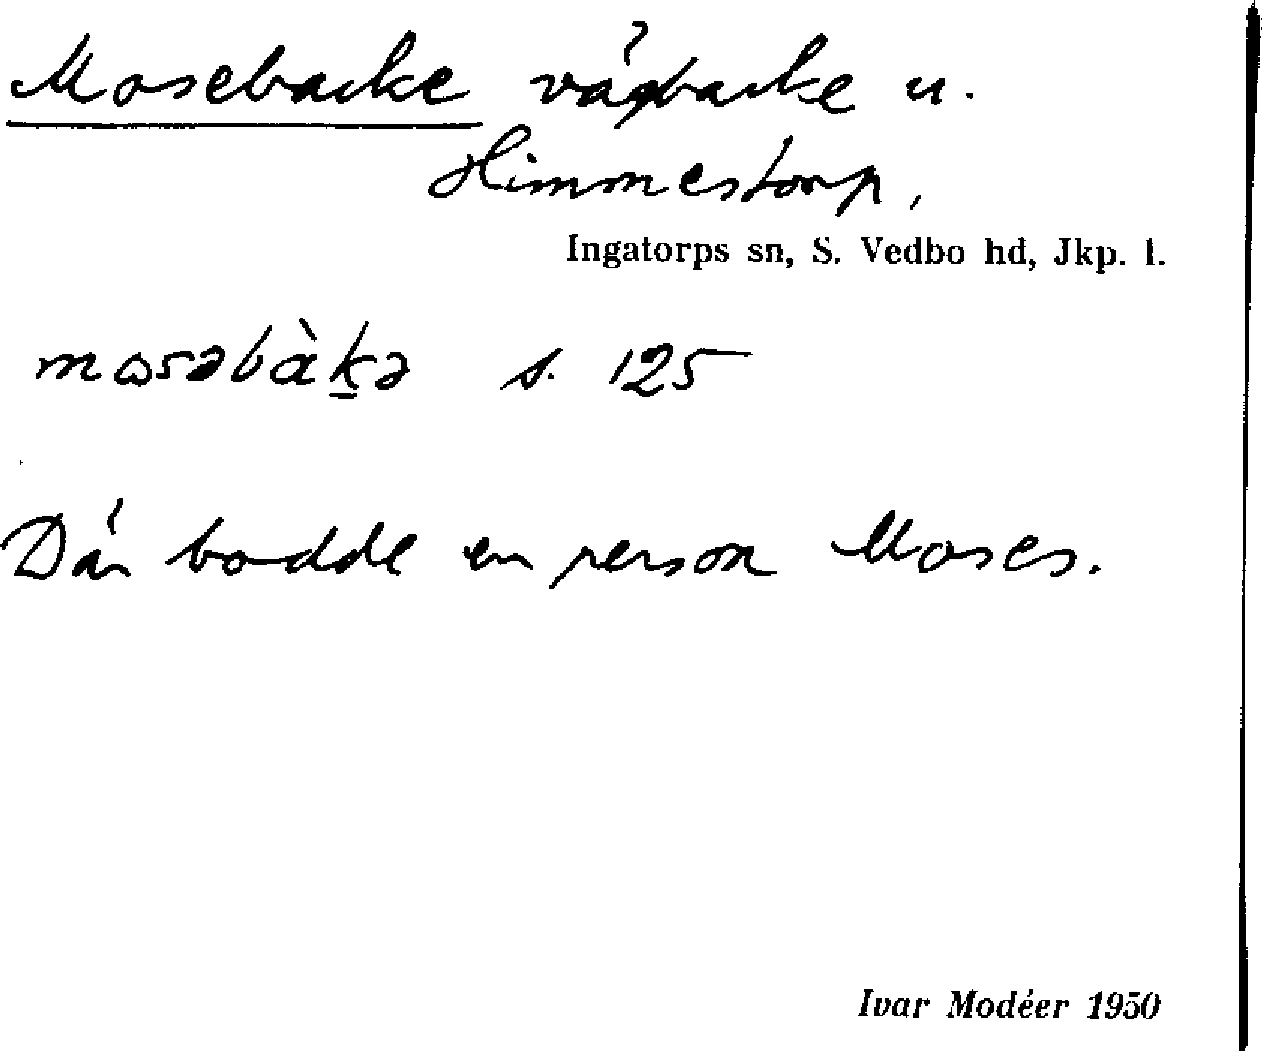 Mosebacke vägbacke u.
Himmestorp,
Ingatorps sn, S. Vedbo hd, Jkp. l.
mɷsəbàk̠ə s. 125
Där bodde en person Moses.
Ivar Modéer 1950